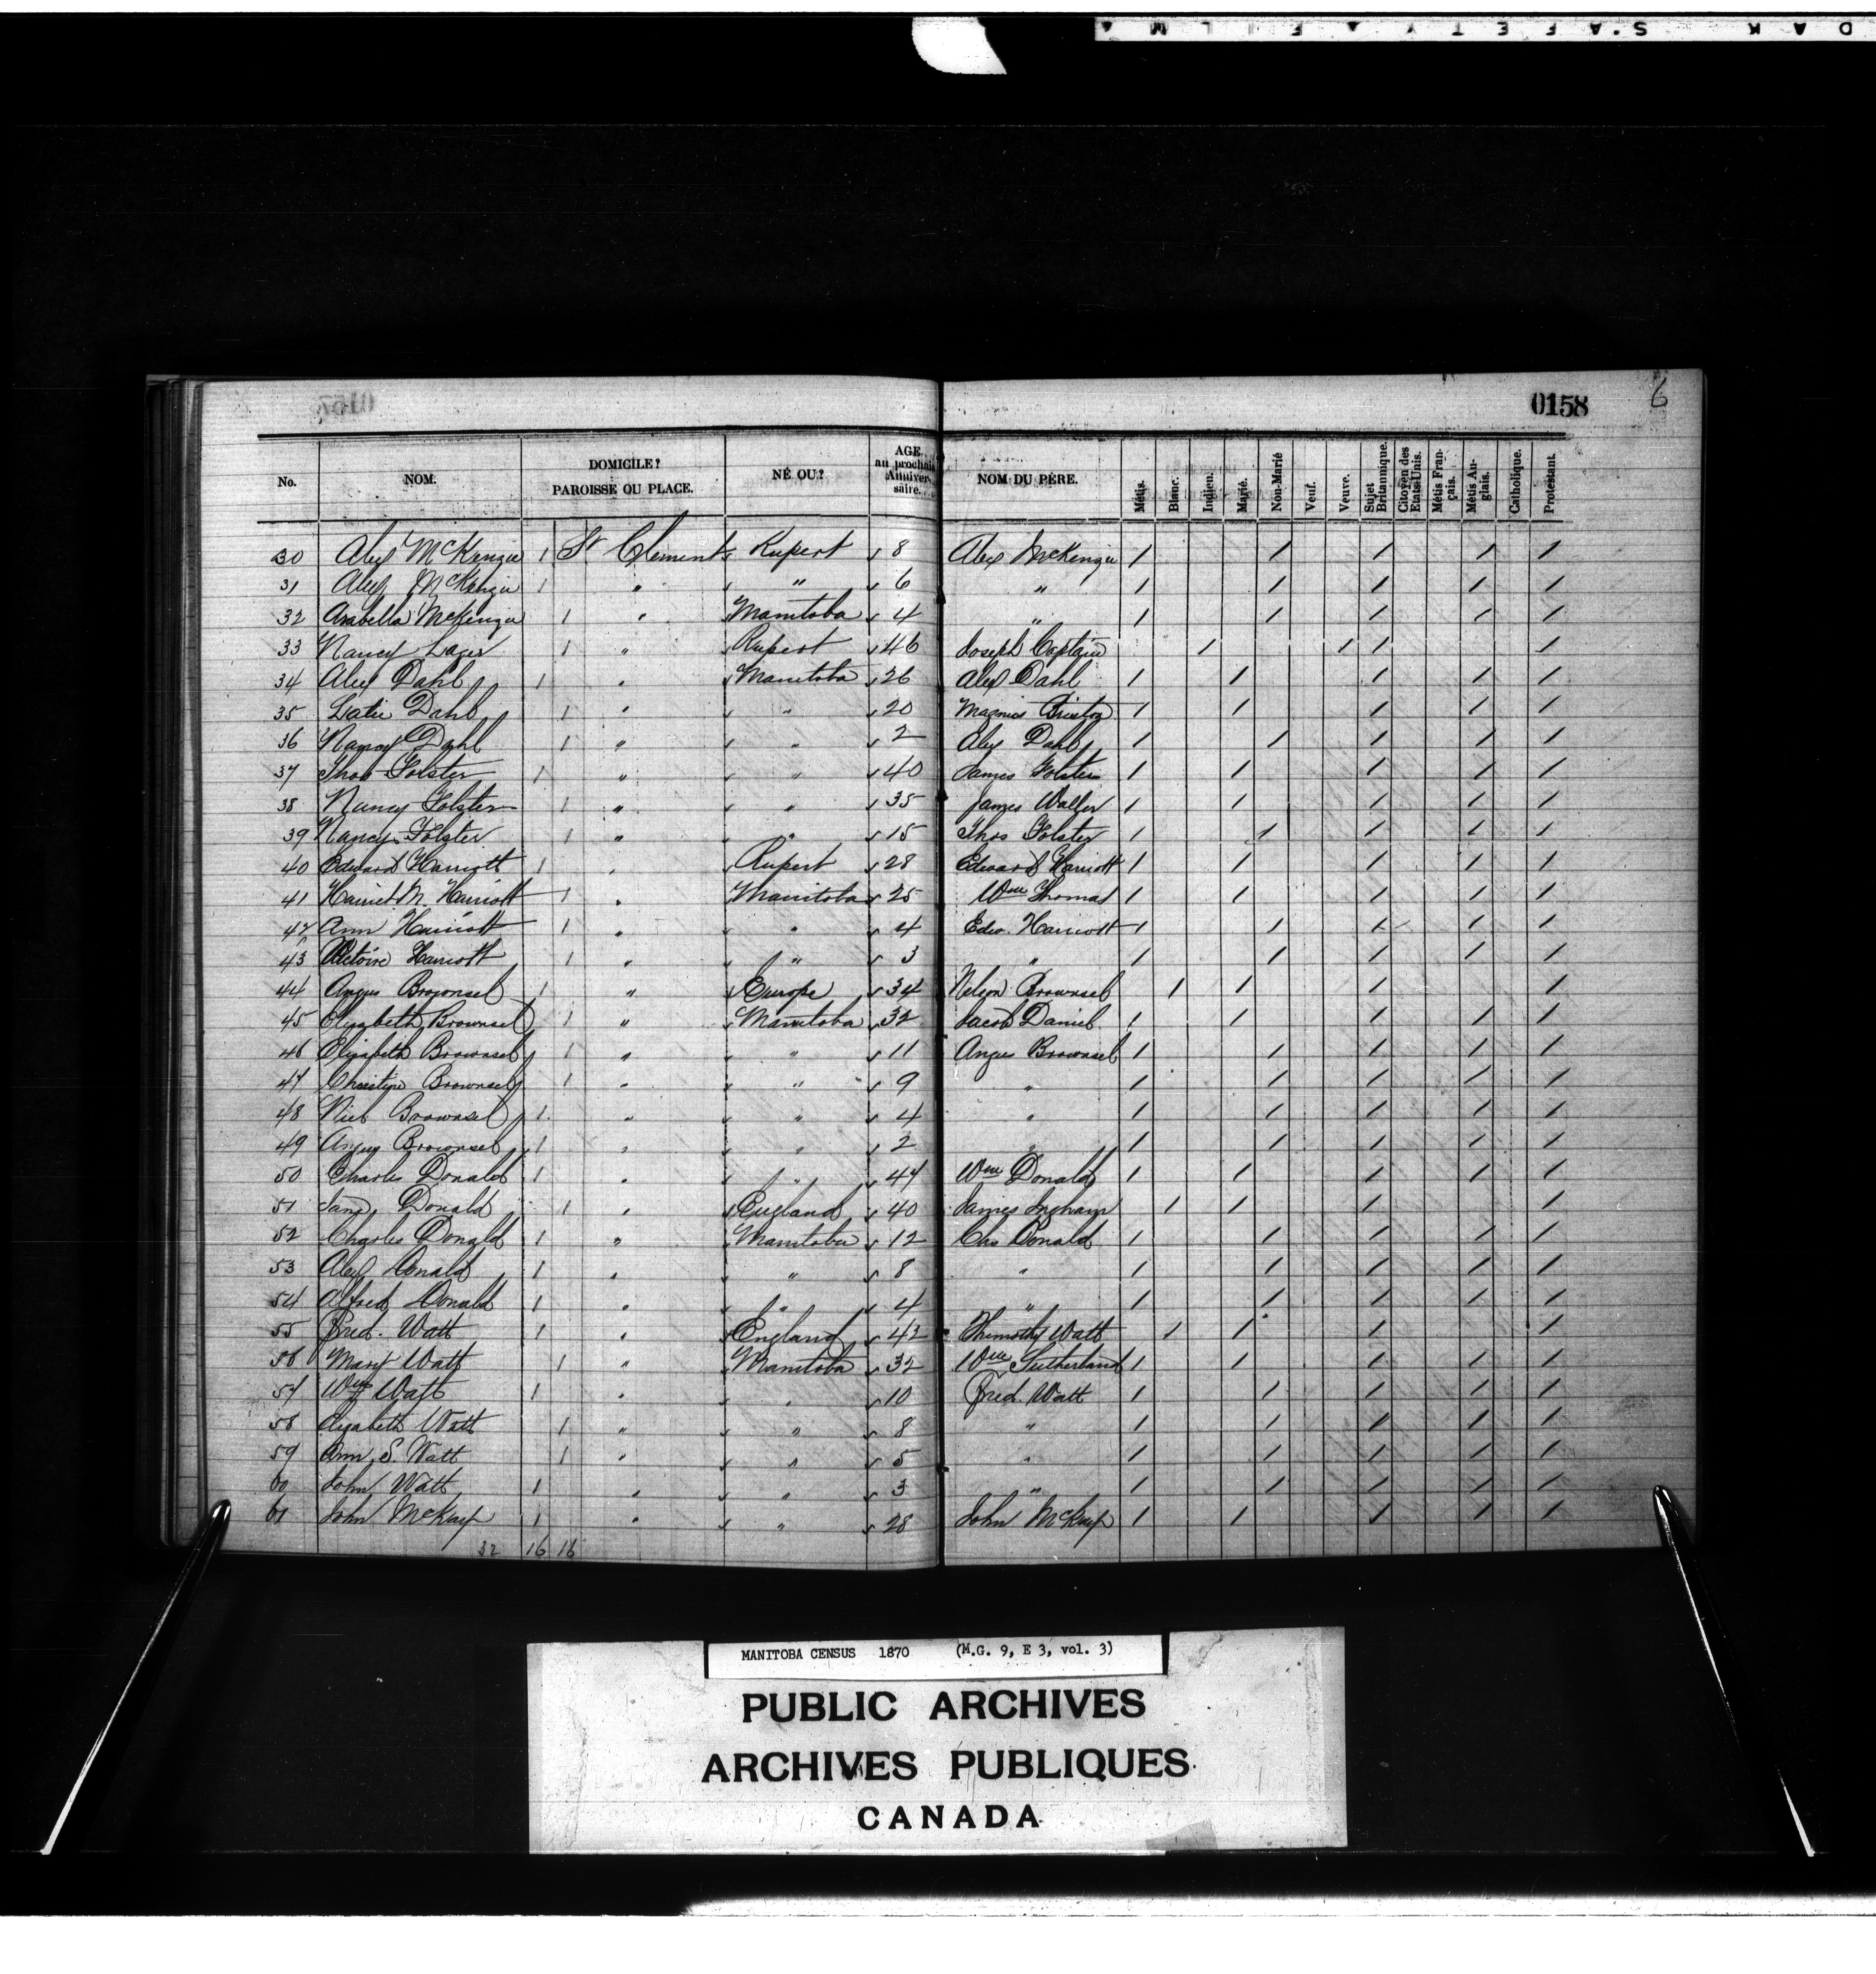 DAK S.A F E T Y ▲ F I L M ▲
0157
0158 6
No. NOM. DOMICILE? PAROISSE OU PLACE. NÉ OU? AGE au prochain Anniversaire. NOM DU PÈRE. Métis. Blanc. Indien. Marié. Non-Marié Veuf. Veuve. Sujet Britannique. Citoyen des Etats-Unis. Métis Français. Métis Anglais. Catholique. Protestant.
30 Alex McKenzie 1 St Clements Rupert 8 Alex McKenzie 1 1 1 1 1
31 Alex McKenzie 1 " " 6 " 1 1 1 1 1
32 Arabella McKenzie 1 " Manitoba 4 " 1 1 1 1 1
33 Nancy 1 " Rupert 46 Joseph Captain 1 1 1 1
34 Alex Dahl 1 " Manitoba 26 Alex Dahl 1 1 1 1 1
35 Dahl 1 " " 20 Magnus 1 1 1 1 1
36 Nancy Dahl 1 " " 2 Alex Dahl 1 1 1 1 1
37 Thos Folster 1 " " 40 James Folster 1 1 1 1 1
38 Nancy Folster 1 " " 35 James Waller 1 1 1 1 1
39 Nancy Folster 1 " " 15 Thos Folster 1 1 1 1 1
40 Edward Harriott 1 " Rupert 28 Edward Harriott 1 1 1 1 1
41 Harriet M. Harriott 1 " Manitoba 25 Wm Thomas 1 1 1 1 1
42 Ann Harriott 1 " " 4 Edw. Harriott 1 1 1 1 1
43 Victoire Harriott 1 " " 3 " 1 1 1 1 1
44 Angus Brownsel 1 " Europe 34 Nelson Brownsel 1 1 1 1
45 Elizabeth Brownsel 1 " Manitoba 32 Jacob Daniel 1 1 1 1 1
46 Elizabeth Brownsel 1 " " 11 Angus Brownsel 1 1 1 1 1
47 Christine Brownsel 1 " " 9 " 1 1 1 1 1
48 Brownsel 1 " " 4 " 1 1 1 1 1
49 Angus Brownsel 1 " " 2 " 1 1 1 1 1
50 Charles Donald 1 " " 47 Wm Donald 1 1 1 1 1
51 Jane Donald 1 " England 40 James Ingham 1 1 1 1
52 Charles Donald 1 " Manitoba 12 Chs Donald 1 1 1 1 1
53 Alex Donald 1 " " 8 " 1 1 1 1 1
54 Alfred Donald 1 " " 4 " 1 1 1 1 1
55 Fred. Watt 1 " England 42 Thimothy Watt 1 1 1 1
56 Mary Watt 1 " Manitoba 32 Wm Sutherland 1 1 1 1 1
57 Wm Watt 1 " " 10 Fred. Watt 1 1 1 1 1
58 Elizabeth Watt 1 " " 8 " 1 1 1 1 1
59 Ann S. Watt 1 " " 5 " 1 1 1 1 1
60 John Watt 1 " " 3 " 1 1 1 1 1
61 John McKay 1 " " 28 John McKay 1 1 1 1 1
32 16 16
MANITOBA CENSUS 1870 (M.G. 9, E 3, vol. 3)
PUBLIC ARCHIVES
ARCHIVES PUBLIQUES
CANADA